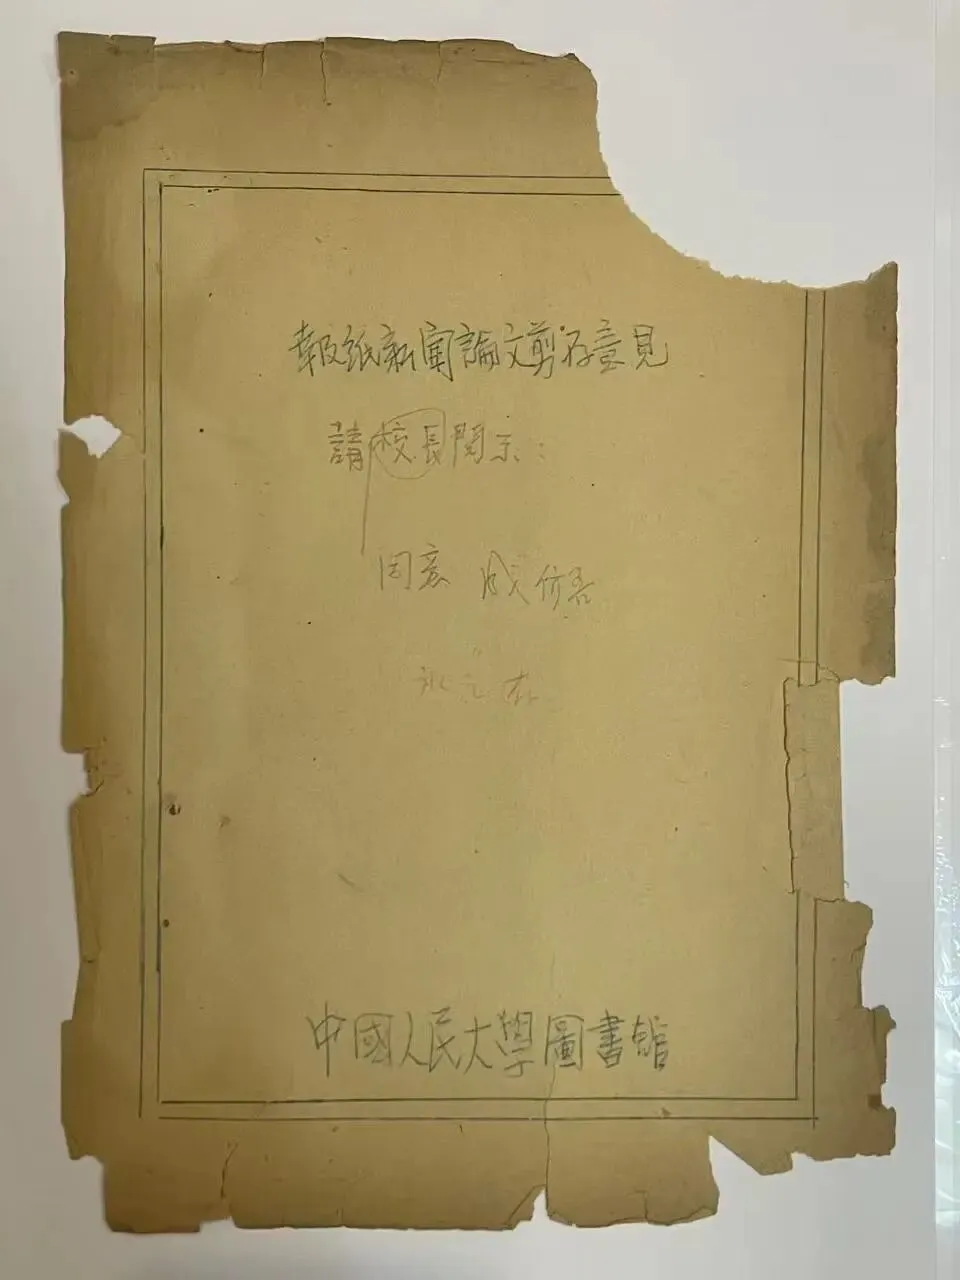 報紙新聞論文剪存意見
請校長閱示：
同意 成仿吾
中國人民大學圖書館